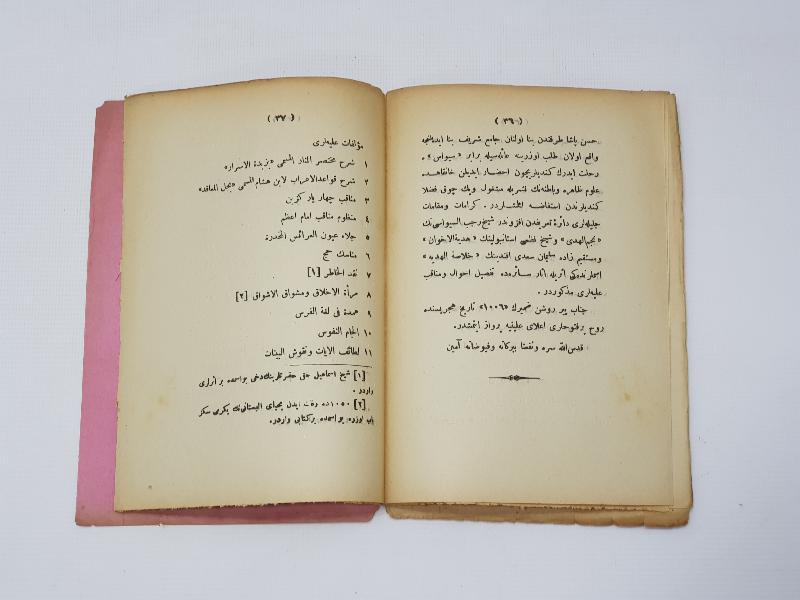 ( ٣٦ )
حسن پاشا طرفندن بنا اولنان جامع شريف بنا ايدلدكجه
واقع اولان طلب اوزرينه عائله‌سيله برابر «سيواس» ه
رحلت ايدرك كنديلريچون احضار ايديلن خانقاهده
علوم ظاهره وباطنه‌نك نشريله مشغول وپك چوق فضلا
كنديلرندن استفاضه ايتمشلردر. كرامات ومقامات
جليله‌لرى دائرهٔ تعريفدن افزوندر شيخ رجب السيواسى‌نك
«نجم‌الهدى» و شيخ نظمى استانبولينك «هدية‌الاخوان»
ومستقيم زاده سليمان سعدى افندينك «خلاصة الهديه»
اسملرنده‌كى اثريله آثار سائره‌ده تفصيل احوال ومناقب
عليه‌لرى مذكوردر.
جناب پير روشن ضميرك «١٠٠٦» تاريخ هجريسنده
روح پرفتوحلرى اعلاى عليينه پرواز ايتمشدر.
قدس‌الله سره ونفعنا ببركاته وفيوضاته آمين
( ٣٧ )
مؤلفات عليه‌لرى
١ شرح مختصر المنار المسمى «بزبدة الاسرار»
٢ شرح قواعدالاعراب لابن هشام المسمى «بحل المعاقد»
٣ مناقب چهار يار كزين
٤ منظوم مناقب امام اعظم
٥ جلاء عيون العرائس المخدرة
٦ مناسك حج
٧ نقد الخاطر [١]
٨ مرأة الاخلاق ومشواق الاشواق [٢]
٩ عمدة فى لغة الفرس
١٠ الجام النفوس
١١ لطائف الآيات ونقوش البينات
[١] شيخ اسماعيل حقى حضرتلرينك‌دخى بو اسمده بر اثرلرى
واردر.
[٢] ١٠٥٠ ده وفات ايدن يحياى البستانى‌نك يكرمى سكز
باب اوزره بو اسمده بر كتابى واردر.